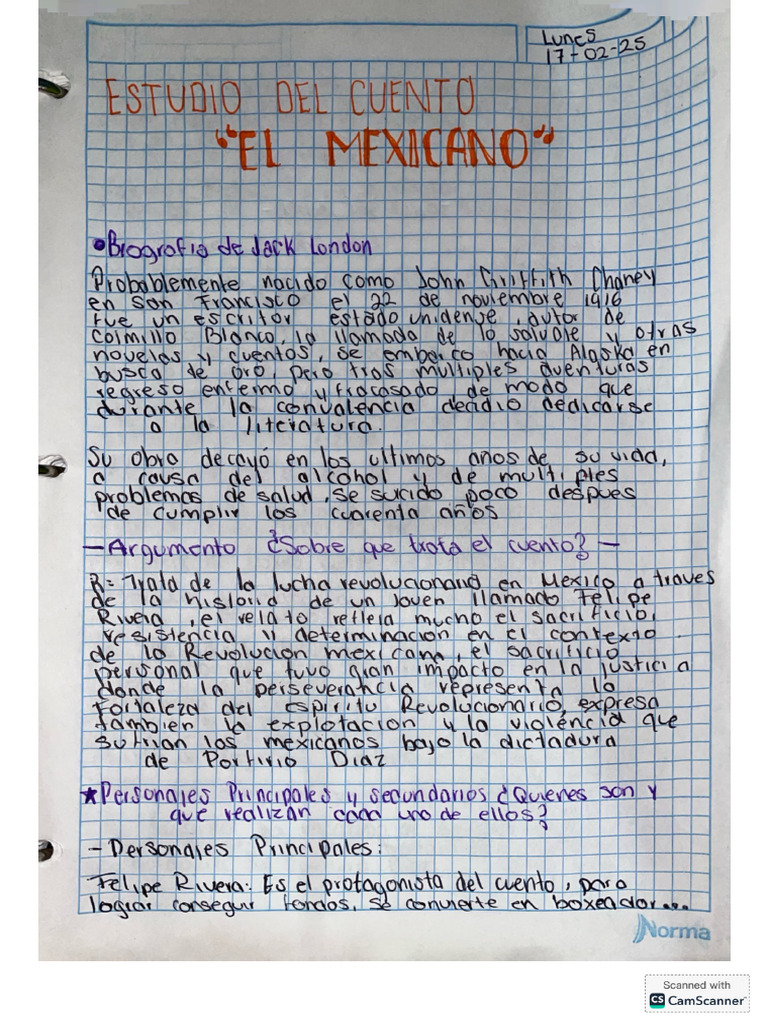 Lunes
17-02-25
ESTUDIO DEL CUENTO
"EL MEXICANO"
•Biografia de Jack London
Probablemente nacido como John Griffith Chaney
en San Francisco el 22 de noviembre 1916
fue un escritor estado unidense, autor de
Colmillo Blanco, la llamada de lo salvaje y otras
novelas y cuentos, se embarco hacia Alaska en
busca de oro, pero tras multiples aventuras
regreso enfermo y fracasado de modo que
durante la convalencia decidio dedicarse
a la literatura.
Su obra decayó en los ultimos años de su vida,
a causa del alcohol y de multiples
problemas de salud, se sucido poco despues
de cumplir los cuarenta años
- Argumento ¿Sobre que trata el cuento? -
R= Trata de la lucha revolucionaria en Mexico a traves
de la historia de un joven llamado Felipe
Rivera, el relato refleja mucho el sacrificio,
resistencia y determinacion en el contexto
de la Revolucion mexicana, el sacrificio
personal que tuvo gran impacto en la justicia
donde la perseverancia representa la
fortaleza del espiritu Revolucionario, expresa
tambien la explotacion y la violencia que
sufrian los mexicanos bajo la dictadura
de Porfirio Diaz
★Personajes Principales y secundarios ¿Quienes son y
que realizan cada uno de ellos?
- Personajes Principales:
Felipe Rivera: Es el protagonista del cuento, para
lograr conseguir fondos, se convierte en boxeador...
Norma
Scanned with
CS CamScanner